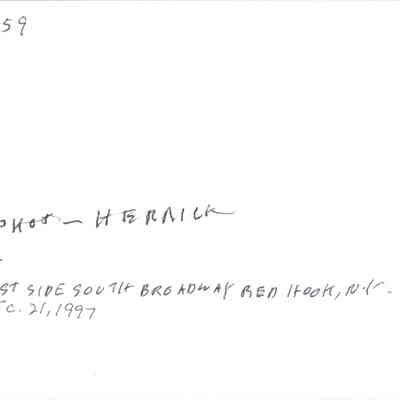 59
PHOT — HERRICK
ST SIDE SOUTH BROADWAY RED HOOK, N.Y.
C. 21, 1997